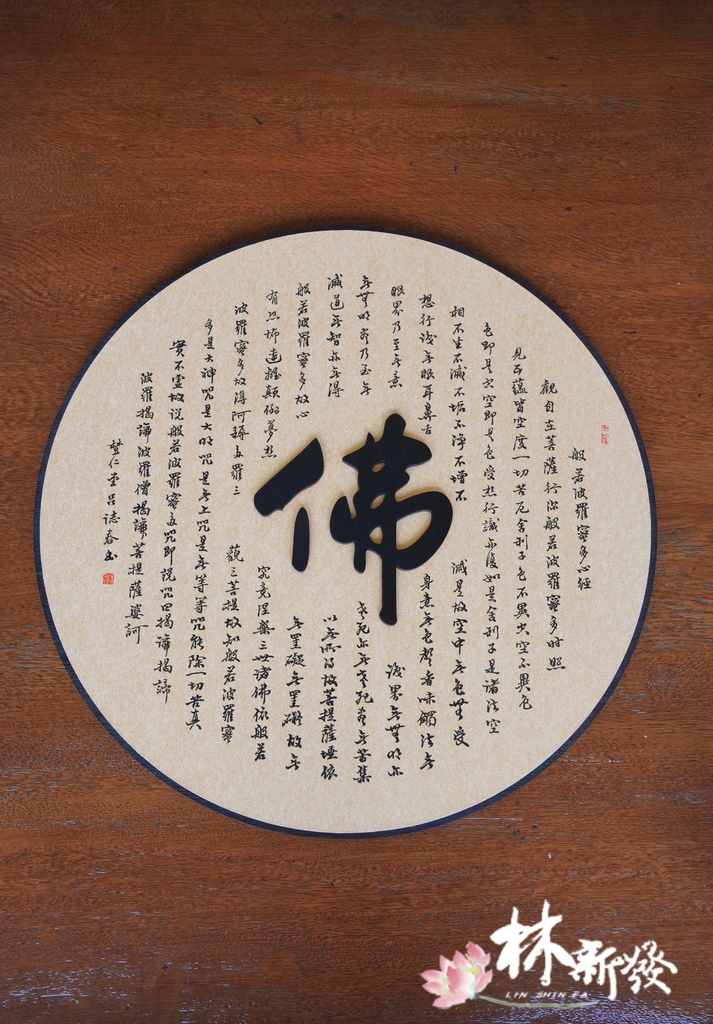 般若波羅蜜多心經
觀自在菩薩行深般若波羅蜜多時照
見五蘊皆空度一切苦厄舍利子色不異空空不異色
色即是空空即是色受想行識亦復如是舍利子是諸法空
相不生不滅不垢不淨不增不減是故空中無色無受
想行識無眼耳鼻舌身意無色聲香味觸法無
眼界乃至無意識界無無明亦
無無明盡乃至無老死亦無老死盡無苦集
滅道無智亦無得以無所得故菩提薩埵依
般若波羅蜜多故心無罣礙無罣礙故無
有恐怖遠離顛倒夢想究竟涅槃三世諸佛依般若
波羅蜜多故得阿耨多羅三藐三菩提故知般若波羅蜜
多是大神咒是大明咒是無上咒是無等等咒能除一切苦真
實不虛故說般若波羅蜜多咒即說咒曰揭諦揭諦
波羅揭諦波羅僧揭諦菩提薩婆訶
佛
林新發
LIN SHIN FA